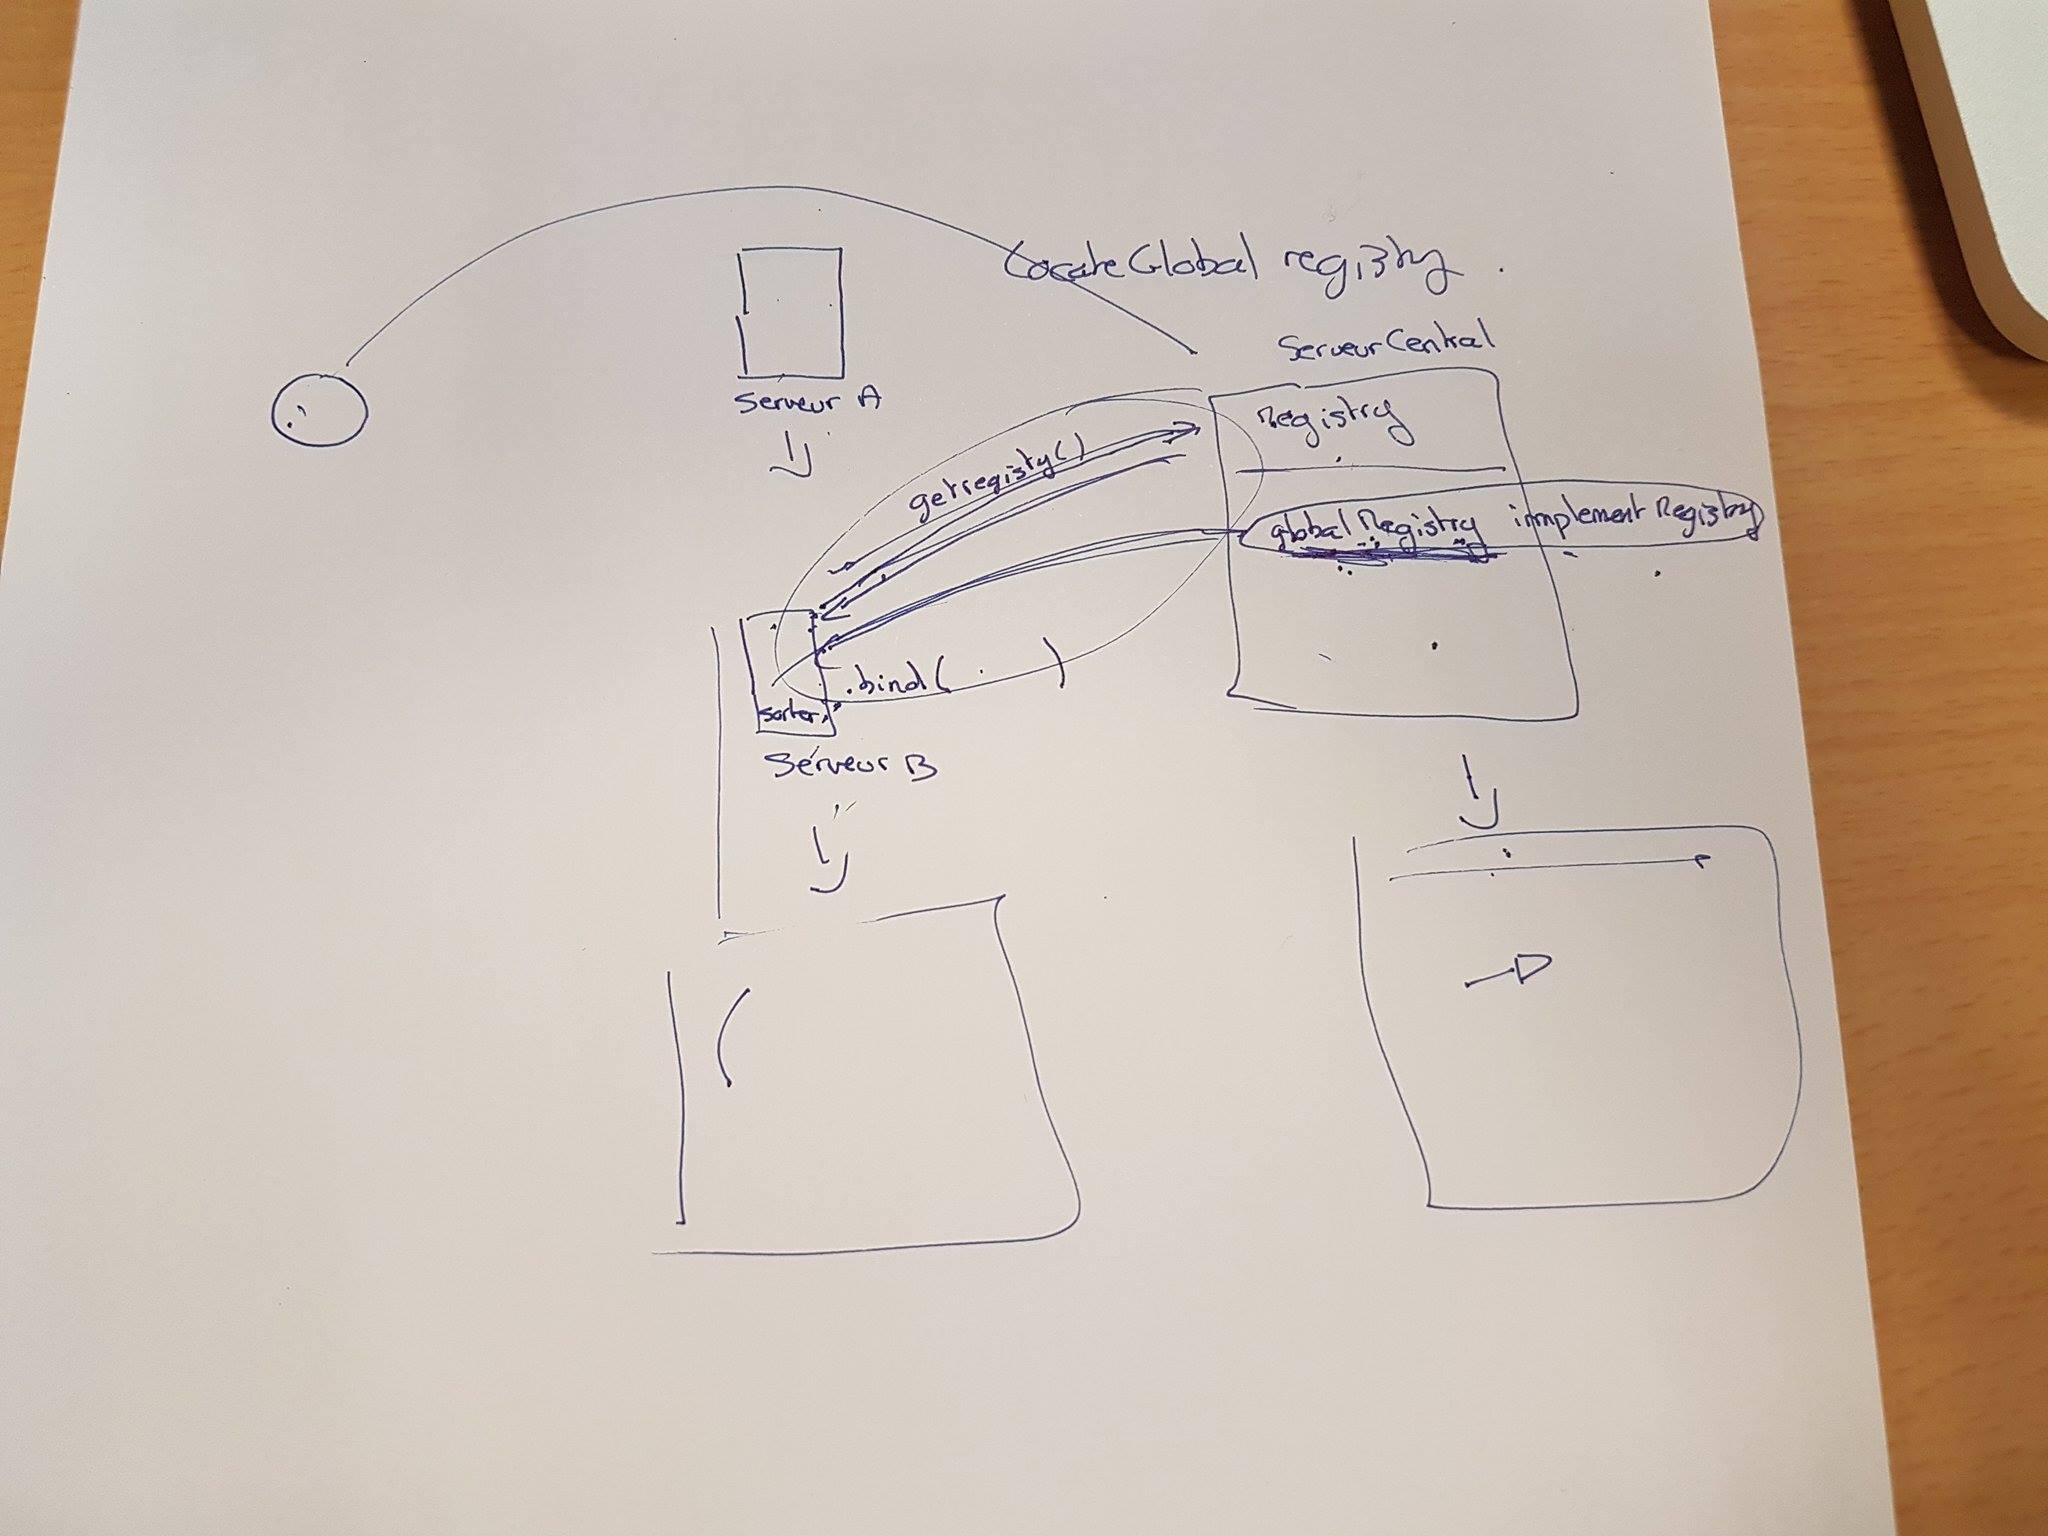 LocateGlobal registry.
Serveur Central
Serveur A
Registry
getregisty()
globalRegistry implement Registry
.bind( . )
sorter
Serveur B